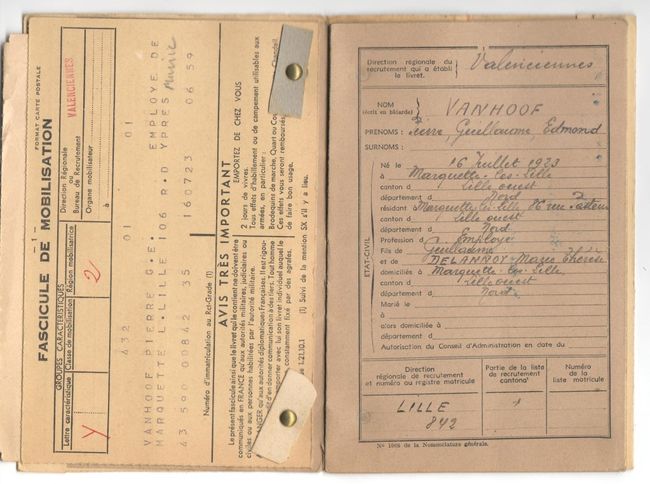 - 1 -
FASCICULE DE MOBILISATION
FORMAT CARTE POSTALE
GROUPES CARACTÉRISTIQUES
Lettre caractéristique
Classe de mobilisation
Région mobilisatrice
Y
2
Direction Régionale
ou
Bureau de Recrutement
VALENCIENNES
Organe mobilisateur
à
432 01 01
VANHOOF PIERRE G.E. EMPLOYE DE Mairie
MARQUETTE L.LILLE 106 R.D YPRES
43 590 00842 35 160723 0659
Numéro d'immatriculation au Rei-Grade (1)
AVIS TRÈS IMPORTANT
Le présent fascicule ainsi que le livret qui le contient ne doivent être
communiqués en FRANCE qu'aux autorités militaires, judiciaires ou
civiles ou aux personnes habilitées par l'autorité militaire.
EMPORTEZ DE CHEZ VOUS
2 jours de vivres.
Tous effets d'habillement ou de campement utilisables aux
armées, en particulier :
Brodequins de marche, Quart ou
Ces effets vous seront remboursés
de faire bon usage.
(1) Suivi de la mention SX s'il y a lieu.
Direction régionale du
recrutement qui a établi
le livret.
Valenciennes
NOM VANHOOF
(écrit en bâtarde)
PRÉNOMS : Pierre, Guillaume Edmond
SURNOMS :
ÉTAT-CIVIL
Né le 16 Juillet 1923
à Marquette-lez-Lille
canton d Lille ouest
département d Nord
résidant Marquette-lez-Lille
canton d Lille ouest
département d Nord
Profession d Employé
Fils de Guillaume
et de DELANNOY Marie Thérèse
domiciliés à Marquette-lez-Lille
canton d Lille ouest
département d Nord
Marié le
à
alors domiciliée à
département d
Autorisation du Conseil d'Administration en date du
Direction
régionale de recrutement
et numéro au registre matricule
Partie de la liste
de recrutement
cantonal
Numéro
de la
liste matricule
LILLE
842
1
de la Nomenclature générale.